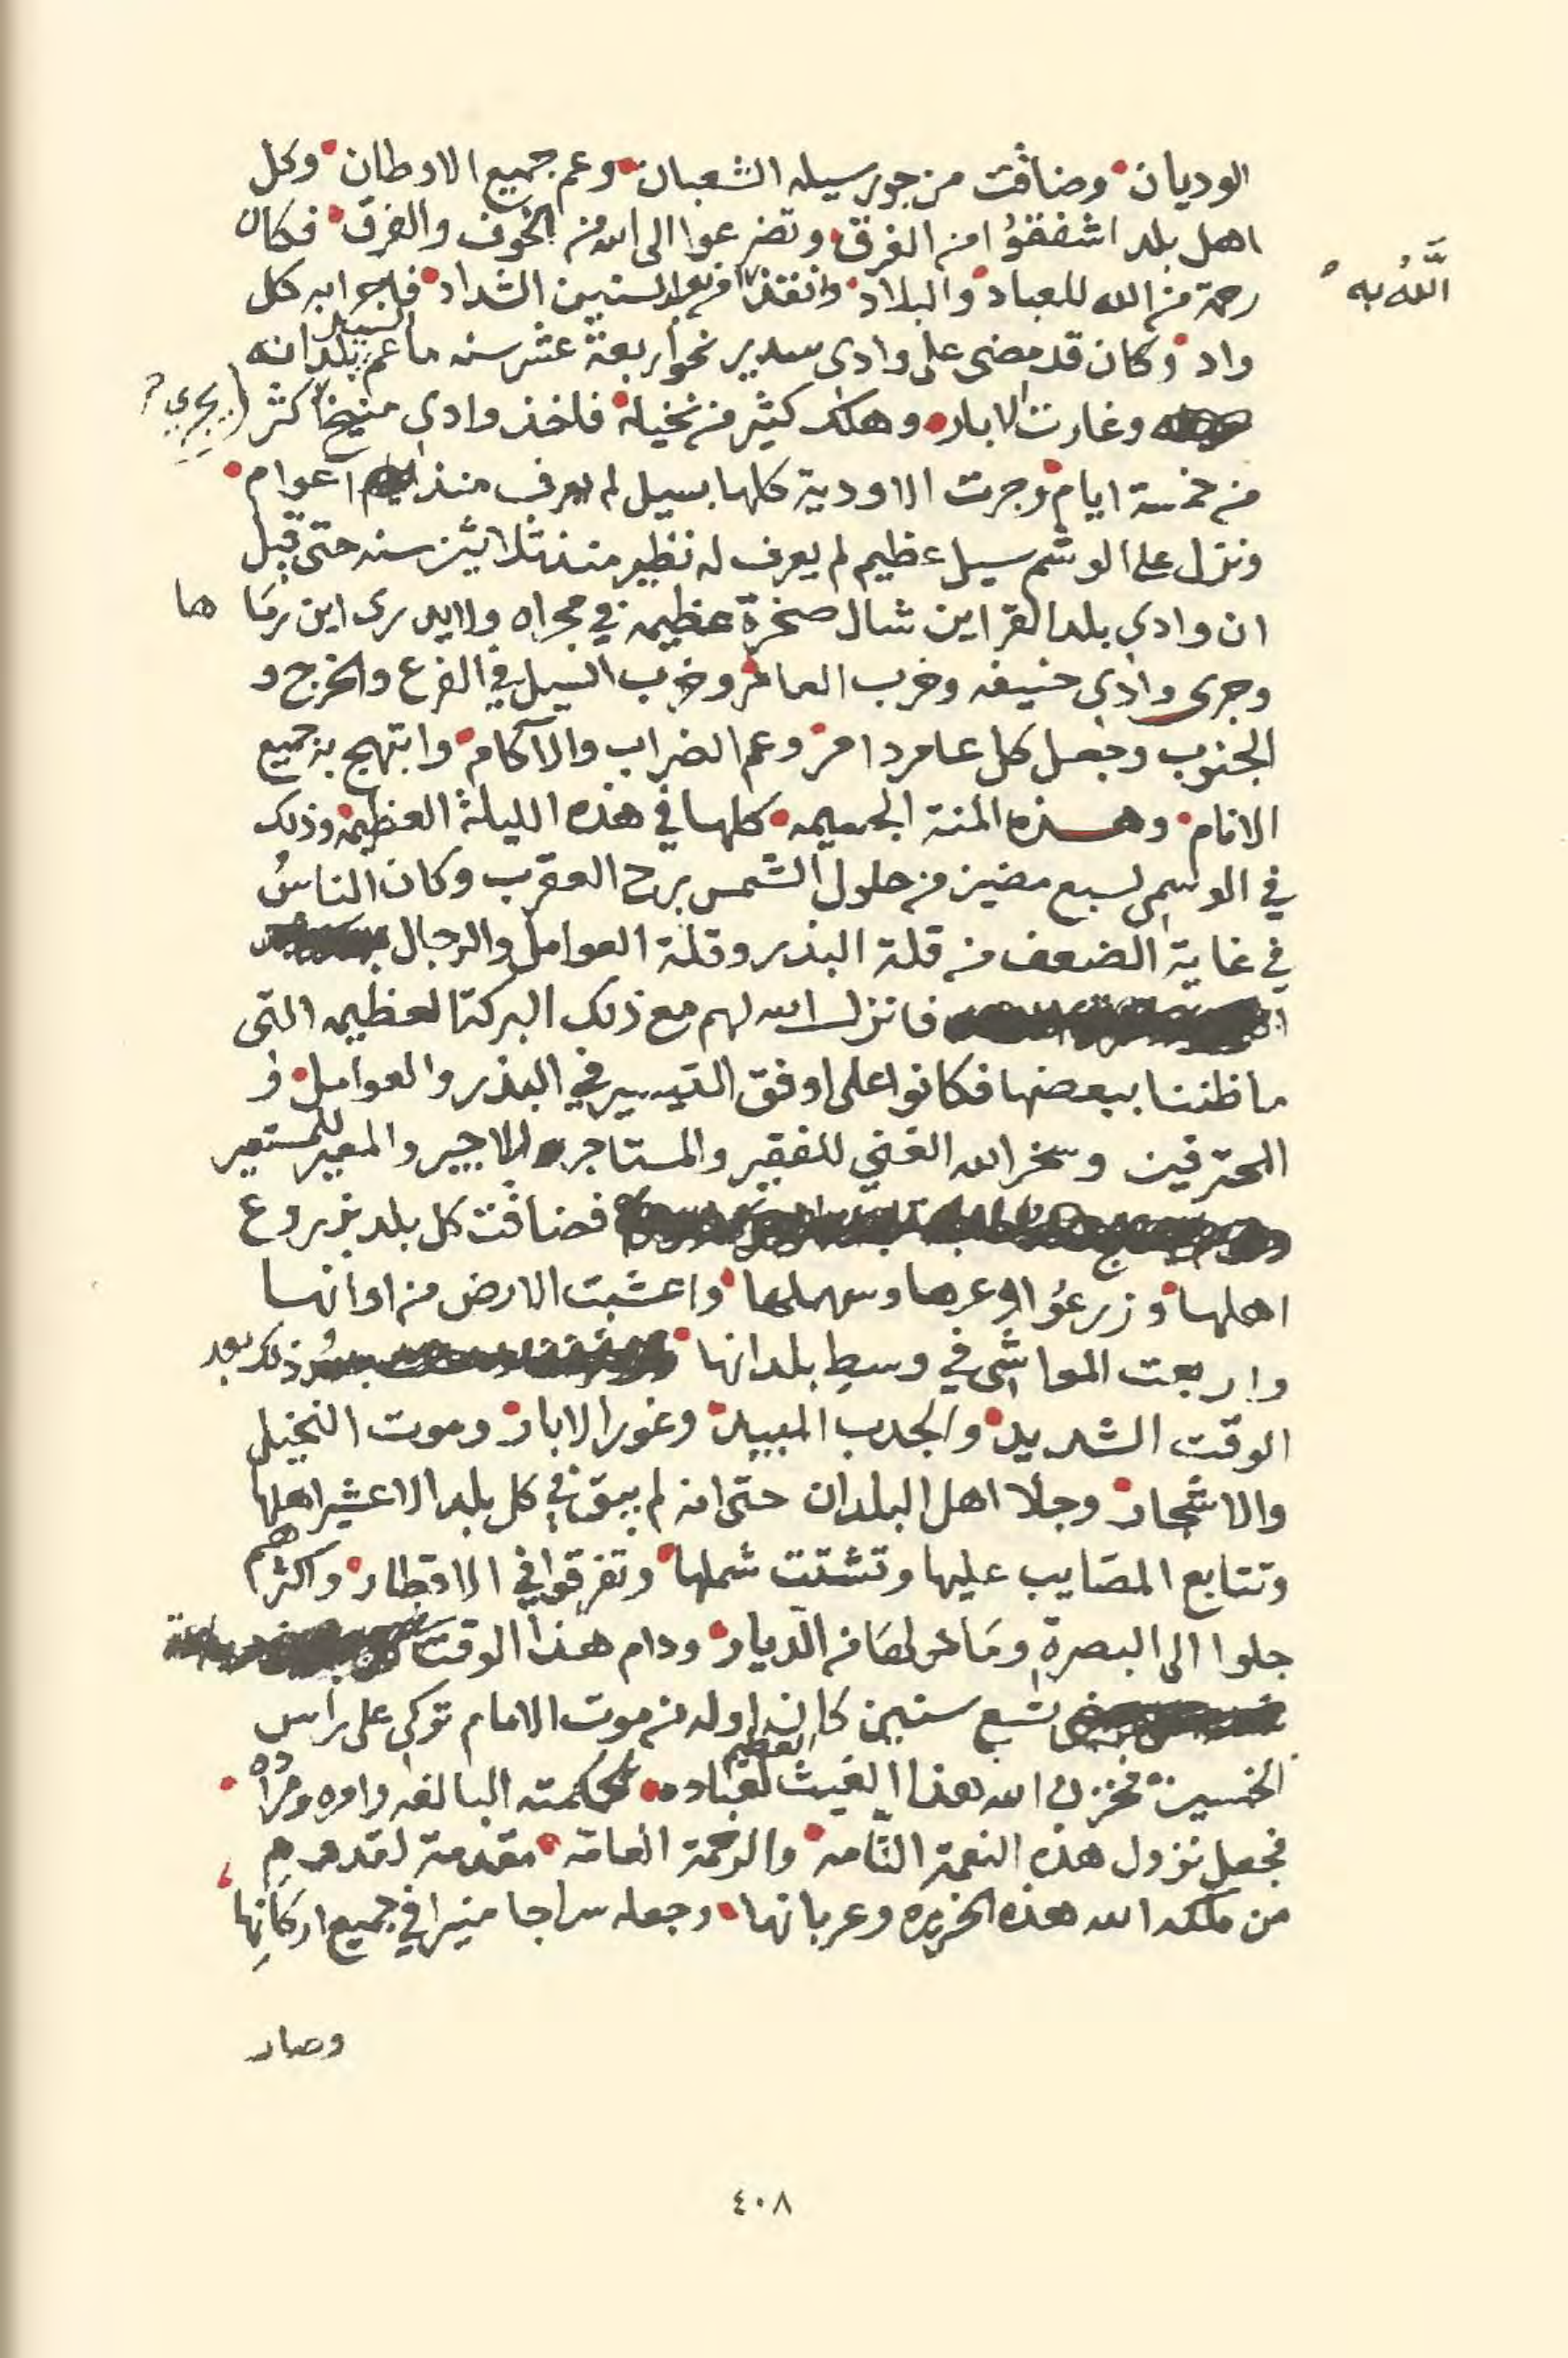 الوديان وضاقت من جور سيله الشعبان وعم جميع الاوطان وكل
اهل بلد اشفقوُا من الغرق وتضرعوا الى الله من الخوف والفرق فكان
رحمة من الله للعباد والبلاد وانقذ الله به من بعد السنين الشداد فاجرا به كل
واد وكان قد مضى على وادى سدير نحو اربعة عشر سنه ما عم السيل بلدانه
وغارت الابار وهلك كثير من نخيله فاخذ وادي منيخ يجري اكثر
من خمسة ايام وجرت الاودية كلها بسيل لم يعرف منذ اعوام
ونزل على الوشم سيل عظيم لم يعرف له نظير منذ ثلاثين سنه حتى قيل
ان وادي بلد القراين شال صخرة عظيمه في مجراه ولا يدرى اين رمَاها
وجرى وادى حنيفه وخرب العامر وخرب السيل في الفرع والخرج و
الجنوب وجعل كل عامر دامر وعم الضراب والآكام وابتهج به جميع
الانام وهذه المنة الجسيمه كلها في هذه الليلة العظيمه وذلك
في الوسمى لسبع مضين من حلول الشمس برج العقرب وكان الناسُ
في غاية الضعف من قلة البذر وقلة العوامل والرجال
فانزل الله لهم مع ذلك البركة العظيمه التى
ما ظننا ببعضها فكانوا على اوفق التيسير في البذر والعوامل و
المحترفين وسخر الله الغني للفقير والمستاجر للاجير والمعير للمستعير
فضاقت كل بلد بزروع
اهلها وزرعوُا وعرها وسهلها واعشبت الارض من اوانها
واربعت المواشي في وسط بلدانها وذلك بعد
الوقت الشديد والجدب المبيد وغور الابار وموت النخيل
والاشجار وجلا اهل البلدان حتى انه لم يبق في كل بلد الا عشير اهلها
وتتابع المصَايب عليها وتشتت شملها وتفرقوا في الاقطار واكثرهم
جلوا الى البصرة ومَا حولهَا من الديار ودام هذا الوقت
تسع سنين كان اوله من موت الامام تركي على راس
الخمسين فخزن الله هذا الغيث العظيم لعباده لحكمته البالغه وامره ومراده
فجعل نزول هذه النعمة التامه والرحمة العامه مقدمة لقدوم
من ملكه الله هذه الجزيره وعربانها وجعله سراجا منيرا في جميع اركانِها
وصار
٤٠٨